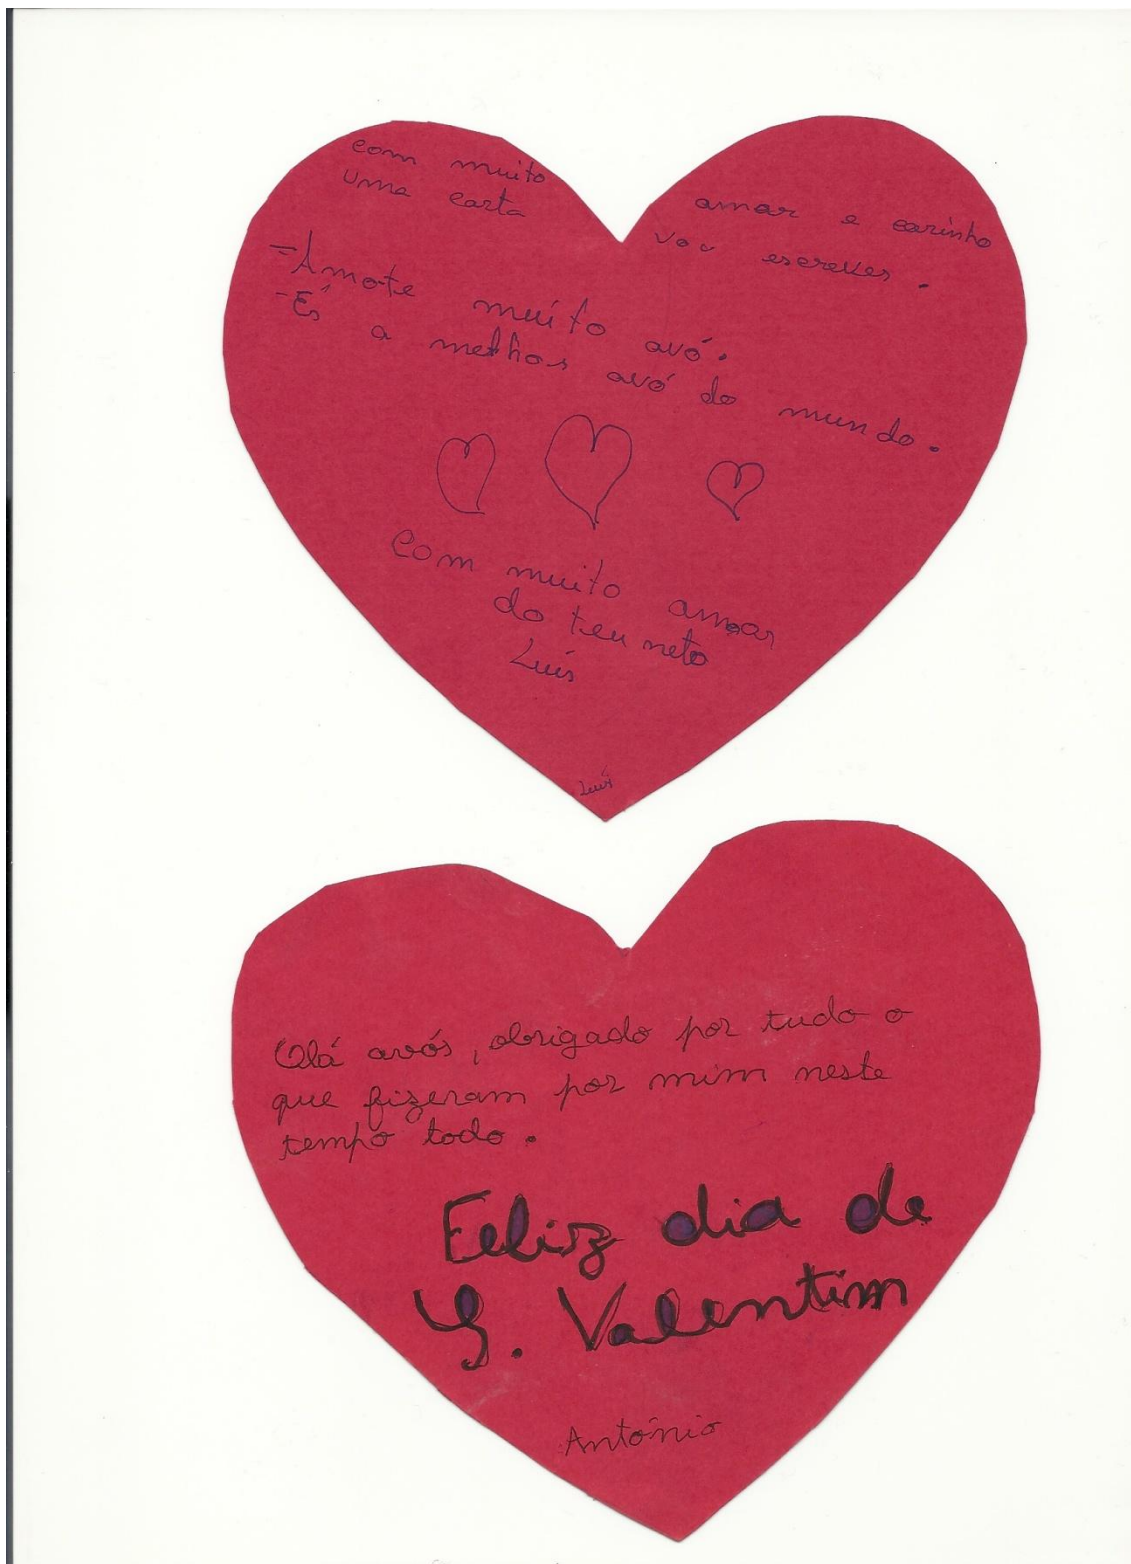 com muito amor e carinho
uma carta vou escrever.
-Amo-te muito avó.
-És a melhor avó do mundo.
Com muito amor
do teu neto
Luís
Luís
Olá avós, obrigado por tudo o
que fizeram por mim neste
tempo todo.
Feliz dia de
S. Valentim
António